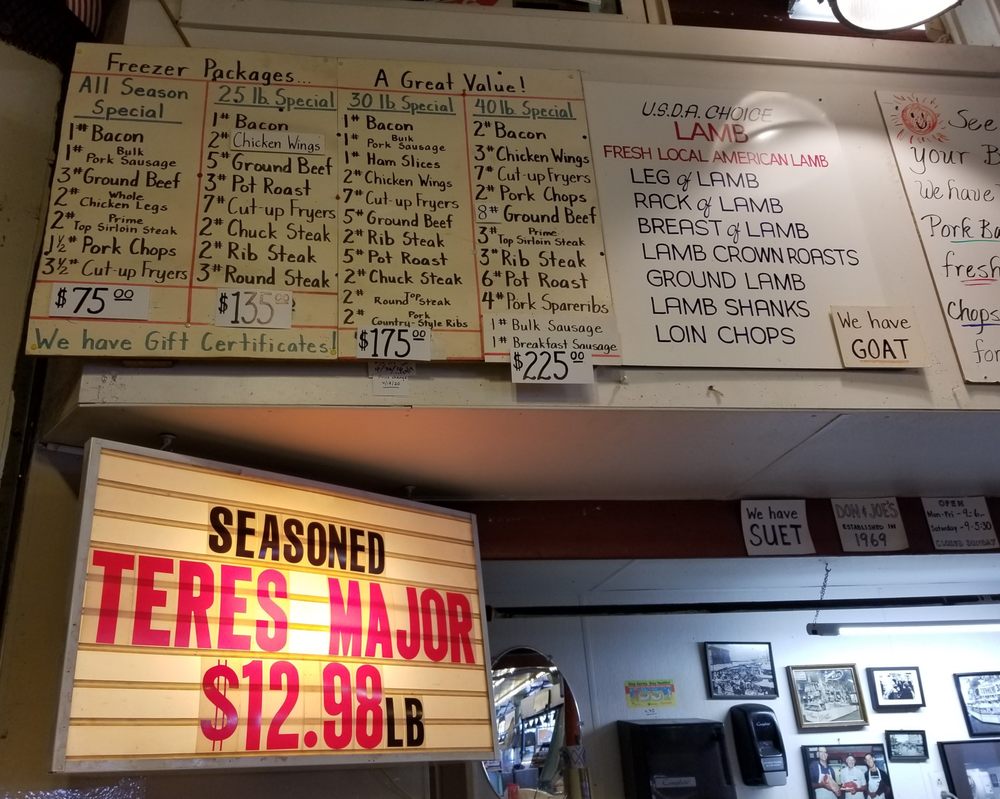 Freezer Packages...
A Great Value!
All Season
Special
1# Bacon
1# Bulk
Pork Sausage
3# Ground Beef
2# Whole
Chicken Legs
2# Prime
Top Sirloin Steak
1½# Pork Chops
3½# Cut-up Fryers
$75.00
25 lb. Special
1# Bacon
2# Chicken Wings
5# Ground Beef
3# Pot Roast
7# Cut-up Fryers
2# Chuck Steak
2# Rib Steak
3# Round Steak
$135.00
We have Gift Certificates!
30 lb Special
1# Bacon
1# Bulk
Pork Sausage
1# Ham Slices
2# Chicken Wings
7# Cut-up Fryers
5# Ground Beef
2# Rib Steak
5# Pot Roast
2# Chuck Steak
2# Top
Round Steak
2# Pork
Country-Style Ribs
$175.00
40 lb. Special
2# Bacon
3# Chicken Wings
7# Cut-up Fryers
2# Pork Chops
8# Ground Beef
3# Prime
Top Sirloin Steak
3# Rib Steak
6# Pot Roast
4# Pork Spareribs
1# Bulk Sausage
1# Breakfast Sausage
$225.00
U.S.D.A. CHOICE
LAMB
FRESH LOCAL AMERICAN LAMB
LEG of LAMB
RACK of LAMB
BREAST of LAMB
LAMB CROWN ROASTS
GROUND LAMB
LAMB SHANKS
LOIN CHOPS
We have
GOAT
See
your B
We have
Pork Ba
fresh
Chops
for
SEASONED
TERES MAJOR
$12.98 LB
We have
SUET
DON & JOE'S
ESTABLISHED IN
1969
OPEN
Mon-Fri - 9-6-
Saturday - 9-5:30
CLOSED SUNDAY